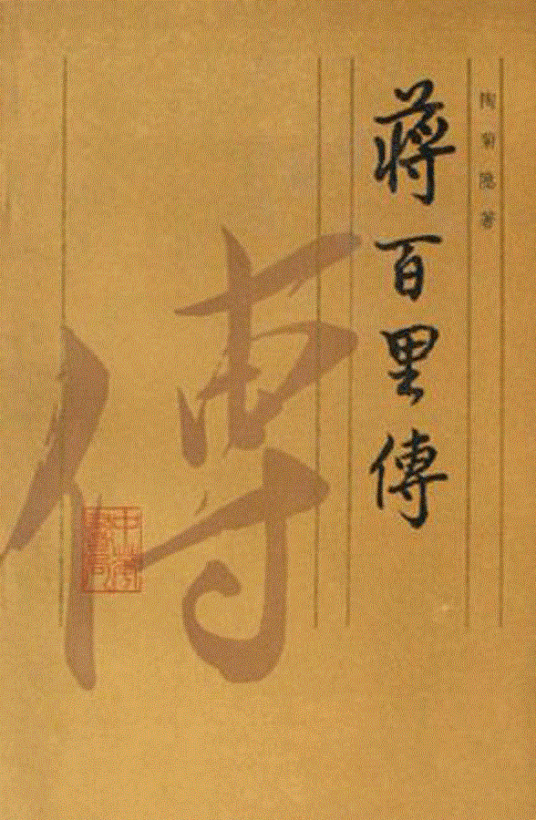 陶菊隐著
蔣百里傳
傳
中華書局